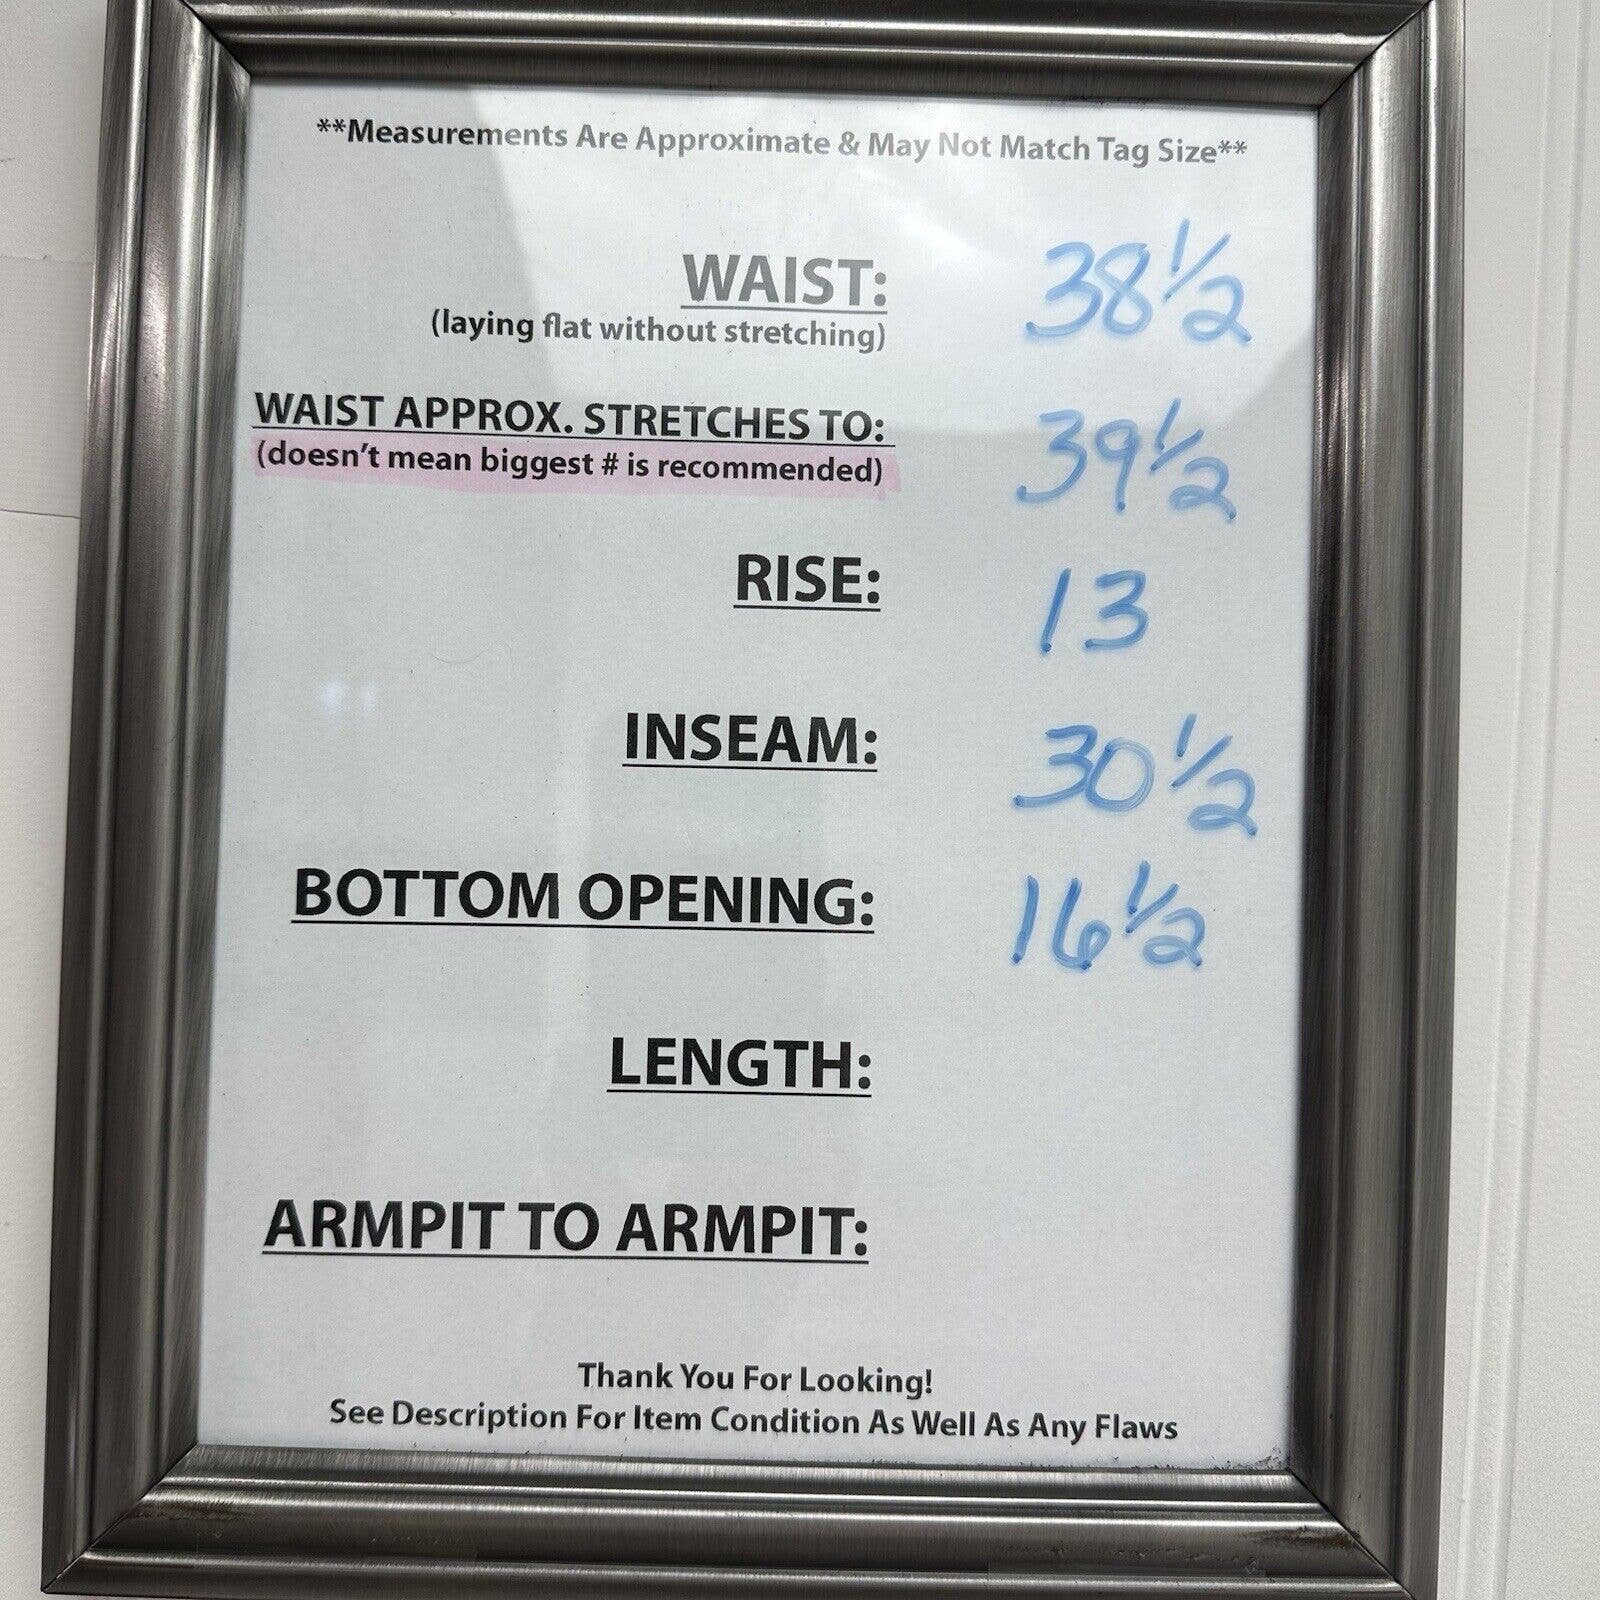 **Measurements Are Approximate & May Not Match Tag Size**
WAIST: 38 1/2
(laying flat without stretching)
WAIST APPROX. STRETCHES TO: 39 1/2
(doesn't mean biggest # is recommended)
RISE: 13
INSEAM: 30 1/2
BOTTOM OPENING: 16 1/2
LENGTH:
ARMPIT TO ARMPIT:
Thank You For Looking!
See Description For Item Condition As Well As Any Flaws